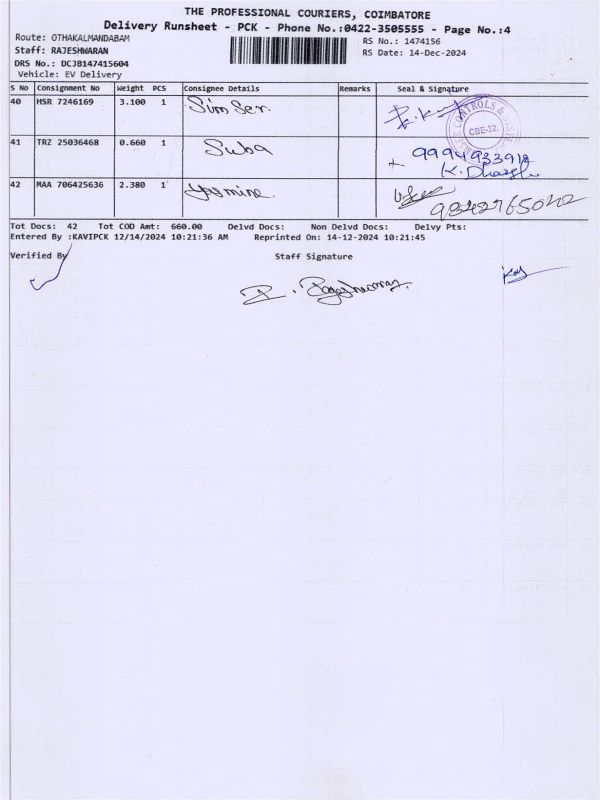 THE PROFESSIONAL COURIERS, COIMBATORE
Delivery Runsheet - PCK - Phone No.:0422-3505555 - Page No.:4
Route: OTHAKALMANDABAM
RS No.: 1474156
Staff: RAJESHWARAN
RS Date: 14-Dec-2024
DRS No.: DCJB147415604
Vehicle: EV Delivery
S No Consignment No Weight PCS Consignee Details Remarks Seal & Signature
40 HSR 7246169 3.100 1 Sim Ser.
CONTROLS &
CBE-32.
41 TRZ 25036468 0.660 1 Suba
K. Dhar
42 MAA 706425636 2.380 1 Yasmine
Tot Docs: 42 Tot COD Amt: 660.00 Delvd Docs: Non Delvd Docs: Delvy Pts:
Entered By :KAVIPCK 12/14/2024 10:21:36 AM Reprinted On: 14-12-2024 10:21:45
Verified By Staff Signature